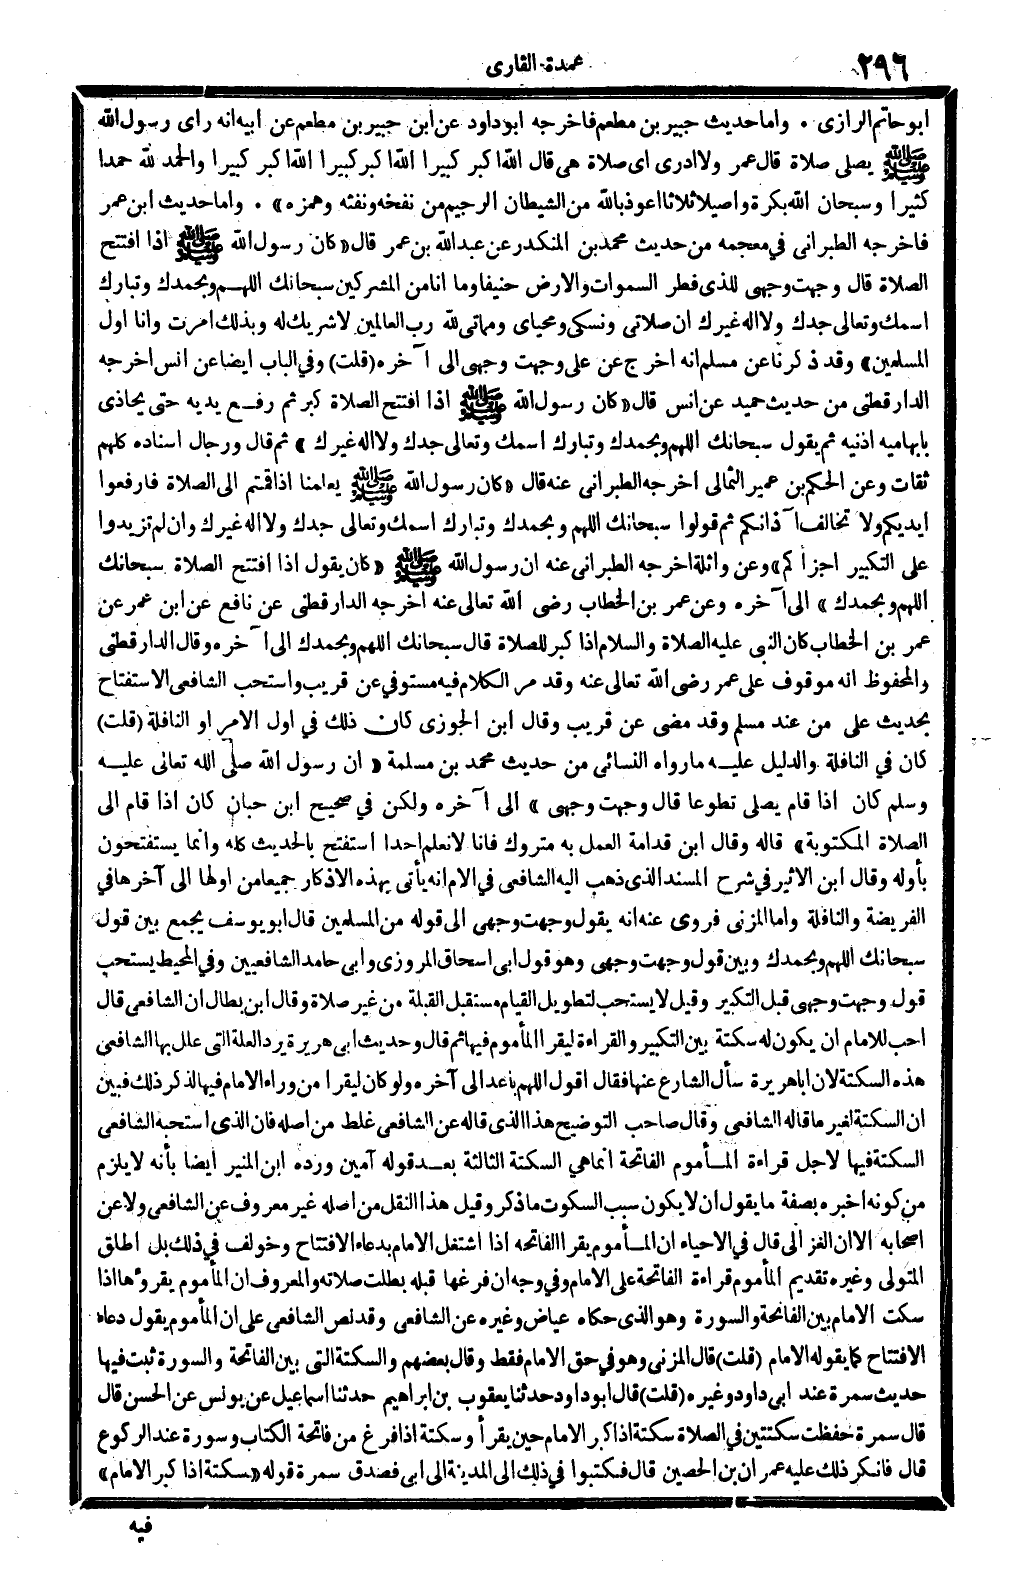 ٢٩٦
عمدة القارى
ابو حاتم الرازى . واما حديث جبير بن مطعم فاخرجه ابو داود عن ابن جبير بن مطعم عن ابيه انه راى رسول الله
ﷺ يصلى صلاة قال عمر ولا ادرى اى صلاة هى قال الله اكبر كبيرا الله اكبر كبيرا الله اكبر كبيرا والحمد لله حمدا
كثيرا وسبحان الله بكرة واصيلا ثلاثا اعوذ بالله من الشيطان الرجيم من نفخه ونفثه وهمزه» . واما حديث ابن عمر
فاخرجه الطبرانى في معجمه من حديث محمد بن المنكدر عن عبد الله بن عمر قال «كان رسول الله ﷺ اذا افتتح
الصلاة قال وجهت وجهى للذى فطر السموات والارض حنيفا وما انا من المشركين سبحانك اللهم وبحمدك وتبارك
اسمك وتعالى جدك ولا اله غيرك ان صلاتى ونسكى ومحياى ومماتى لله رب العالمين لا شريك له وبذلك امرت وانا اول
المسلمين» وقد ذكرنا عن مسلم انه اخرج عن على وجهت وجهى الى آخره (قلت) وفي الباب ايضا عن انس اخرجه
الدارقطنى من حديث حميد عن انس قال «كان رسول الله ﷺ اذا افتتح الصلاة كبر ثم رفع يديه حتى يحاذى
بابهاميه اذنيه ثم يقول سبحانك اللهم وبحمدك وتبارك اسمك وتعالى جدك ولا اله غيرك» ثم قال ورجال اسناده كلهم
ثقات وعن الحكم بن عمير الثمالى اخرجه الطبرانى عنه قال «كان رسول الله ﷺ يعلمنا اذا قمتم الى الصلاة فارفعوا
ايديكم ولا تخالف آذانكم ثم قولوا سبحانك اللهم وبحمدك وتبارك اسمك وتعالى جدك ولا اله غيرك وان لم تزيدوا
على التكبير اجزاكم» وعن واثلة اخرجه الطبرانى عنه ان رسول الله ﷺ «كان يقول اذا افتتح الصلاة سبحانك
اللهم وبحمدك» الى آخره وعن عمر بن الخطاب رضى الله تعالى عنه اخرجه الدارقطنى عن نافع عن ابن عمر عن
عمر بن الخطاب كان النبى عليه الصلاة والسلام اذا كبر للصلاة قال سبحانك اللهم وبحمدك الى آخره وقال الدارقطنى
والمحفوظ انه موقوف على عمر رضى الله تعالى عنه وقد مر الكلام فيه مستوفى عن قريب واستحب الشافعى الاستفتاح
بحديث على من عند مسلم وقد مضى عن قريب وقال ابن الجوزى كان ذلك في اول الامر او النافلة (قلت)
كان في النافلة والدليل عليه ما رواه النسائى من حديث محمد بن مسلمة «ان رسول الله صلى الله تعالى عليه
وسلم كان اذا قام يصلى تطوعا قال وجهت وجهى» الى آخره ولكن في صحيح ابن حبان كان اذا قام الى
الصلاة المكتوبة» قاله وقال ابن قدامة العمل به متروك فانا لا نعلم احدا استفتح بالحديث كله وانما يستفتحون
بأوله وقال ابن الاثير في شرح المسند الذى ذهب اليه الشافعى في الام انه يأتى بهذه الاذكار جميعا من اولها الى آخرها في
الفريضة والنافلة واما المزنى فروى عنه انه يقول وجهت وجهى الى قوله من المسلمين قال ابو يوسف يجمع بين قول
سبحانك اللهم وبحمدك وبين قول وجهت وجهى وهو قول ابى اسحاق المروزى وابى حامد الشافعيين وفي المحيط يستحب
قول وجهت وجهى قبل التكبير وقيل لا يستحب لتطويل القيام مستقبل القبلة من غير صلاة وقال ابن بطال ان الشافعى قال
احب للامام ان يكون له سكتة بين التكبير والقراءة ليقرا المأموم فيها ثم قال وحديث ابى هريرة يرد العلة التى علل بها الشافعى
هذه السكتة لان ابا هريرة سأل الشارع عنها فقال اقول اللهم باعد الى آخره ولو كان ليقرا من وراء الامام فيها لذكر ذلك فبين
ان السكتة لغير ما قاله الشافعى وقال صاحب التوضيح هذا الذى قاله عن الشافعى غلط من اصله فان الذى استحبه الشافعى
السكتة فيها لاجل قراءة المأموم الفاتحة انما هي السكتة الثالثة بعد قوله آمين ورده ابن المنير ايضا بأنه لا يلزم
من كونه اخبره بصفة ما يقول ان لا يكون سبب السكوت ما ذكر وقيل هذا النقل من اصله غير معروف عن الشافعى ولا عن
اصحابه الا ان الغزالى قال في الاحياء ان المأموم يقرا الفاتحه اذا اشتغل الامام بدعاء الافتتاح وخولف في ذلك بل اطلق
المتولى وغيره تقديم المأموم قراءة الفاتحة على الامام وفي وجه ان فرغها قبله بطلت صلاته والمعروف ان المأموم يقرؤها اذا
سكت الامام بين الفاتحة والسورة وهو الذى حكاه عياض وغيره عن الشافعى وقد نص الشافعى على ان المأموم يقول دعاء
الافتتاح كما يقوله الامام (قلت) قال المزنى وهو في حق الامام فقط وقال بعضهم والسكتة التى بين الفاتحة والسورة ثبت فيها
حديث سمرة عند ابى داود وغيره (قلت) قال ابو داود حدثنا يعقوب بن ابراهيم حدثنا اسماعيل عن يونس عن الحسن قال
قال سمرة حفظت سكتتين في الصلاة سكتة اذا كبر الامام حين يقرأ وسكتة اذا فرغ من فاتحة الكتاب وسورة عند الركوع
قال فانكر ذلك عليه عمران بن الحصين قال فكتبوا في ذلك الى المدينة الى ابى فصدق سمرة قوله «سكتة اذا كبر الامام»
فيه